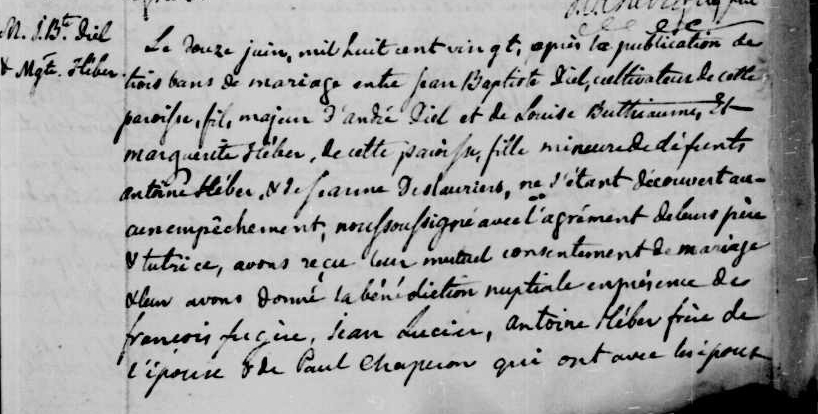 M. J. Bte. Diel
& Mgte. Héber.
Le douze juin, mil huit cent vingt, après la publication de
trois bans de mariage entre jean Baptiste Diel, cultivateur de cette
paroisse, fils majeur d'andré Diel et de Louise Buthiaume, Et
marguerite Héber, de cette paroisse, fille mineure de défunts
antoine Héber, & de Jeanne Deslauriers, ne s'étant découvert au-
cun empêchement, nous soussigné avec l'agrément de leurs père
& tutrice, avons reçu leur mutuel consentement de mariage
& leur avons donné la bénédiction nuptiale en présence de
françois fugère, Jean Lucier, antoine Héber frère de
l'épouse & de Paul Chaperon qui ont avec les époux